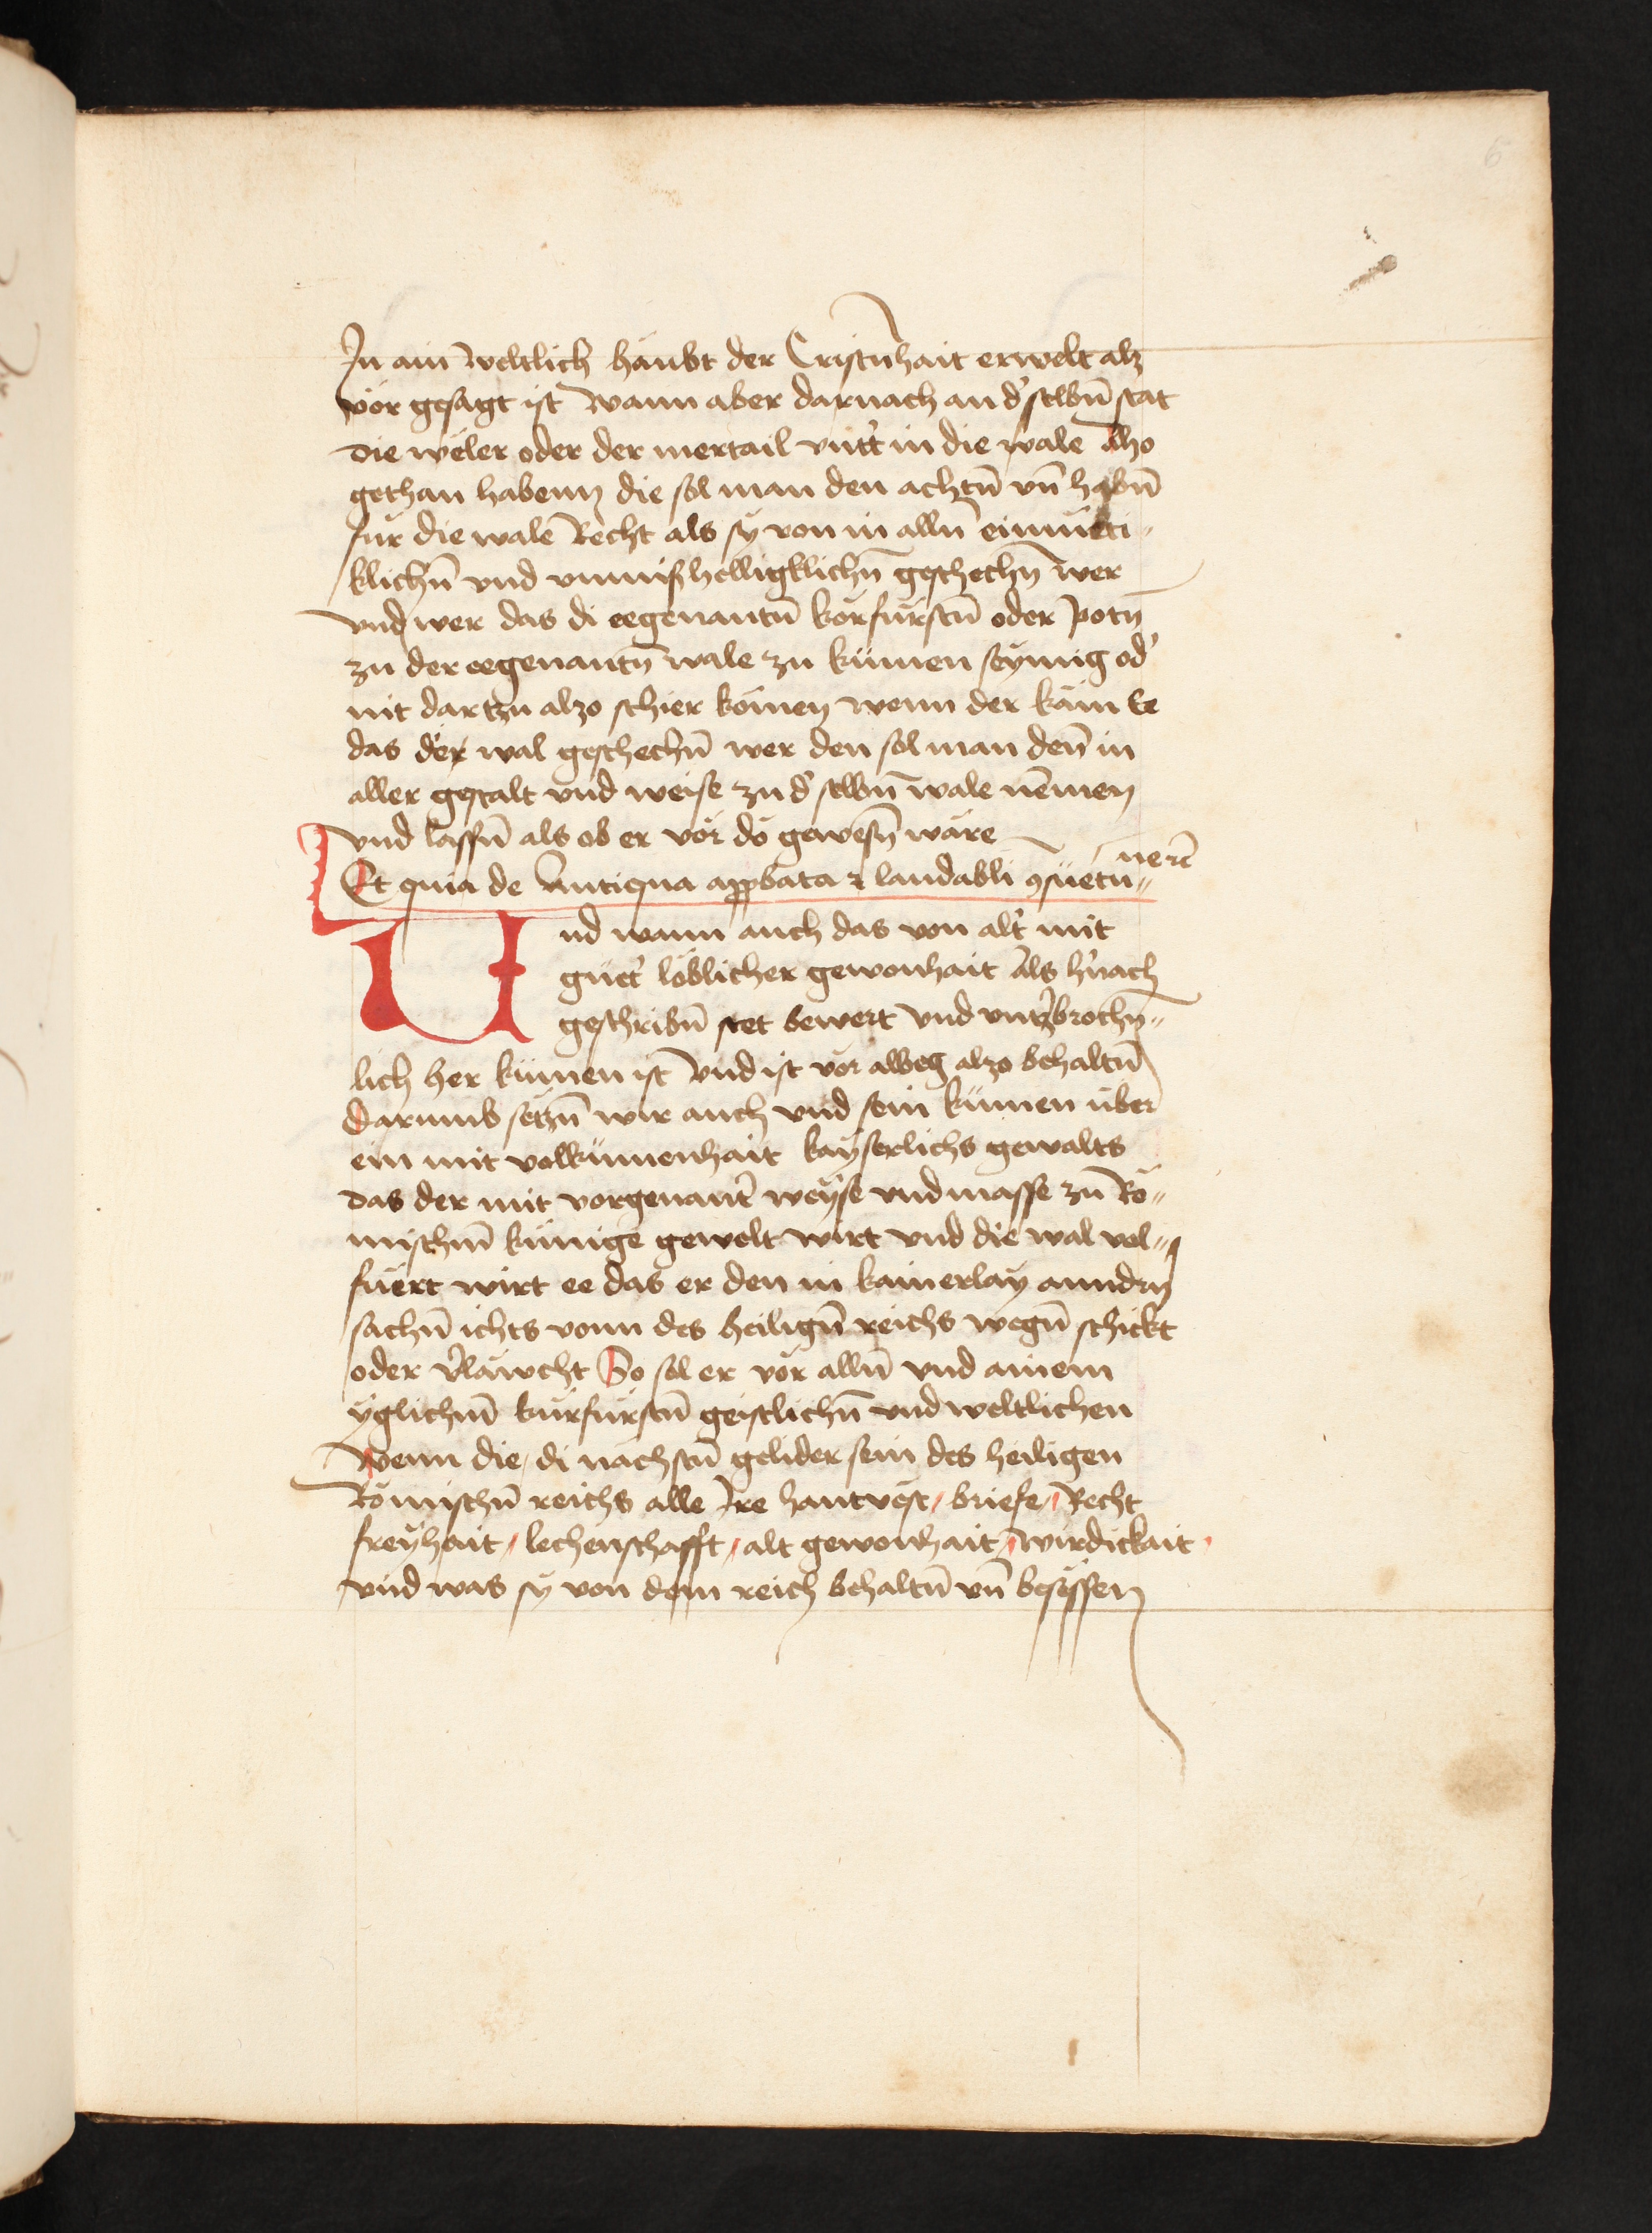 6
In ain̄ weltlich haubt der Cristn̄hait erwelt alz
vor gesagt ist Wann aber darnach an d' selbn̄ stat
die weler oder der mertail vntt' in die wale Also
gethan habenn die sol man den achtn̄ vn̄ habn̄
fur die wale Recht als sy von in alln̄ einmuti-
klichn̄ vnd vnmißhelligklichn̄ geschechn̄ wer
vnd wer das di eegenantn̄ korfurstn̄ oder potn̄
zu der eegenantn̄ wale zu kūmen seymig od'
nit dartzu alzo schier komen wenn der kām Ee
das der wal geschechn̄ wer den sol man den̄ in
aller gestalt vnd weise zu d' selbn̄ wale nēmen
vnd lassn̄ als ob er vor do gewesn̄ wäre
Et quia de Antiqua app̱bata ⁊ laudabli ꝯsuetu-
nd wann auch das von alt' mit
gutt' loblicher gewonhait Als h'nach
geschribn̄ stet bewert vnd vnt'brochn̄-
lich her kūmen ist Vnd ist vor alweg alzo behaltn̄
darumb setzn̄ wir auch vnd sein kūmen über
ein mit volkūmenhait kayserlichs gewalts
das der mit vorgenant' weyse vnd masse zu Ro-
mischm̄ kūnige gewelt wirt vnd die wal vol-
fuert wirt ee das er den in kainerlay anndn̄
sachn̄ ichts vonn des heilign̄ reichs wegn̄ schickt
oder v'läwcht So sol er vor alln̄ vnd ainem
yglichm̄ kurfurstn̄ geistlichn̄ vnd weltlichen
Wenn die, di nachstn̄ gelider sein des heiligen
Römischn̄ reichs alle Ire hantvest, briefe, Recht
freyhait, lechenschafft, alt gewonhait, wirdickait
vnd was sy von dem reich behaltn̄ vn̄ besessen